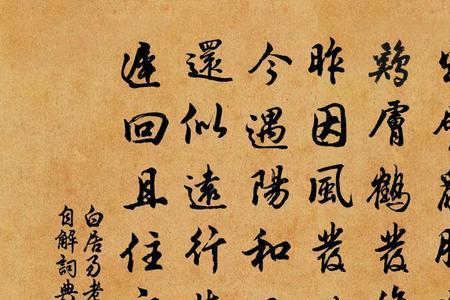 鷄膚鶴發
昨因風發
今遇陽和
還似遠行
遲回且住
白居易老
自解詞典